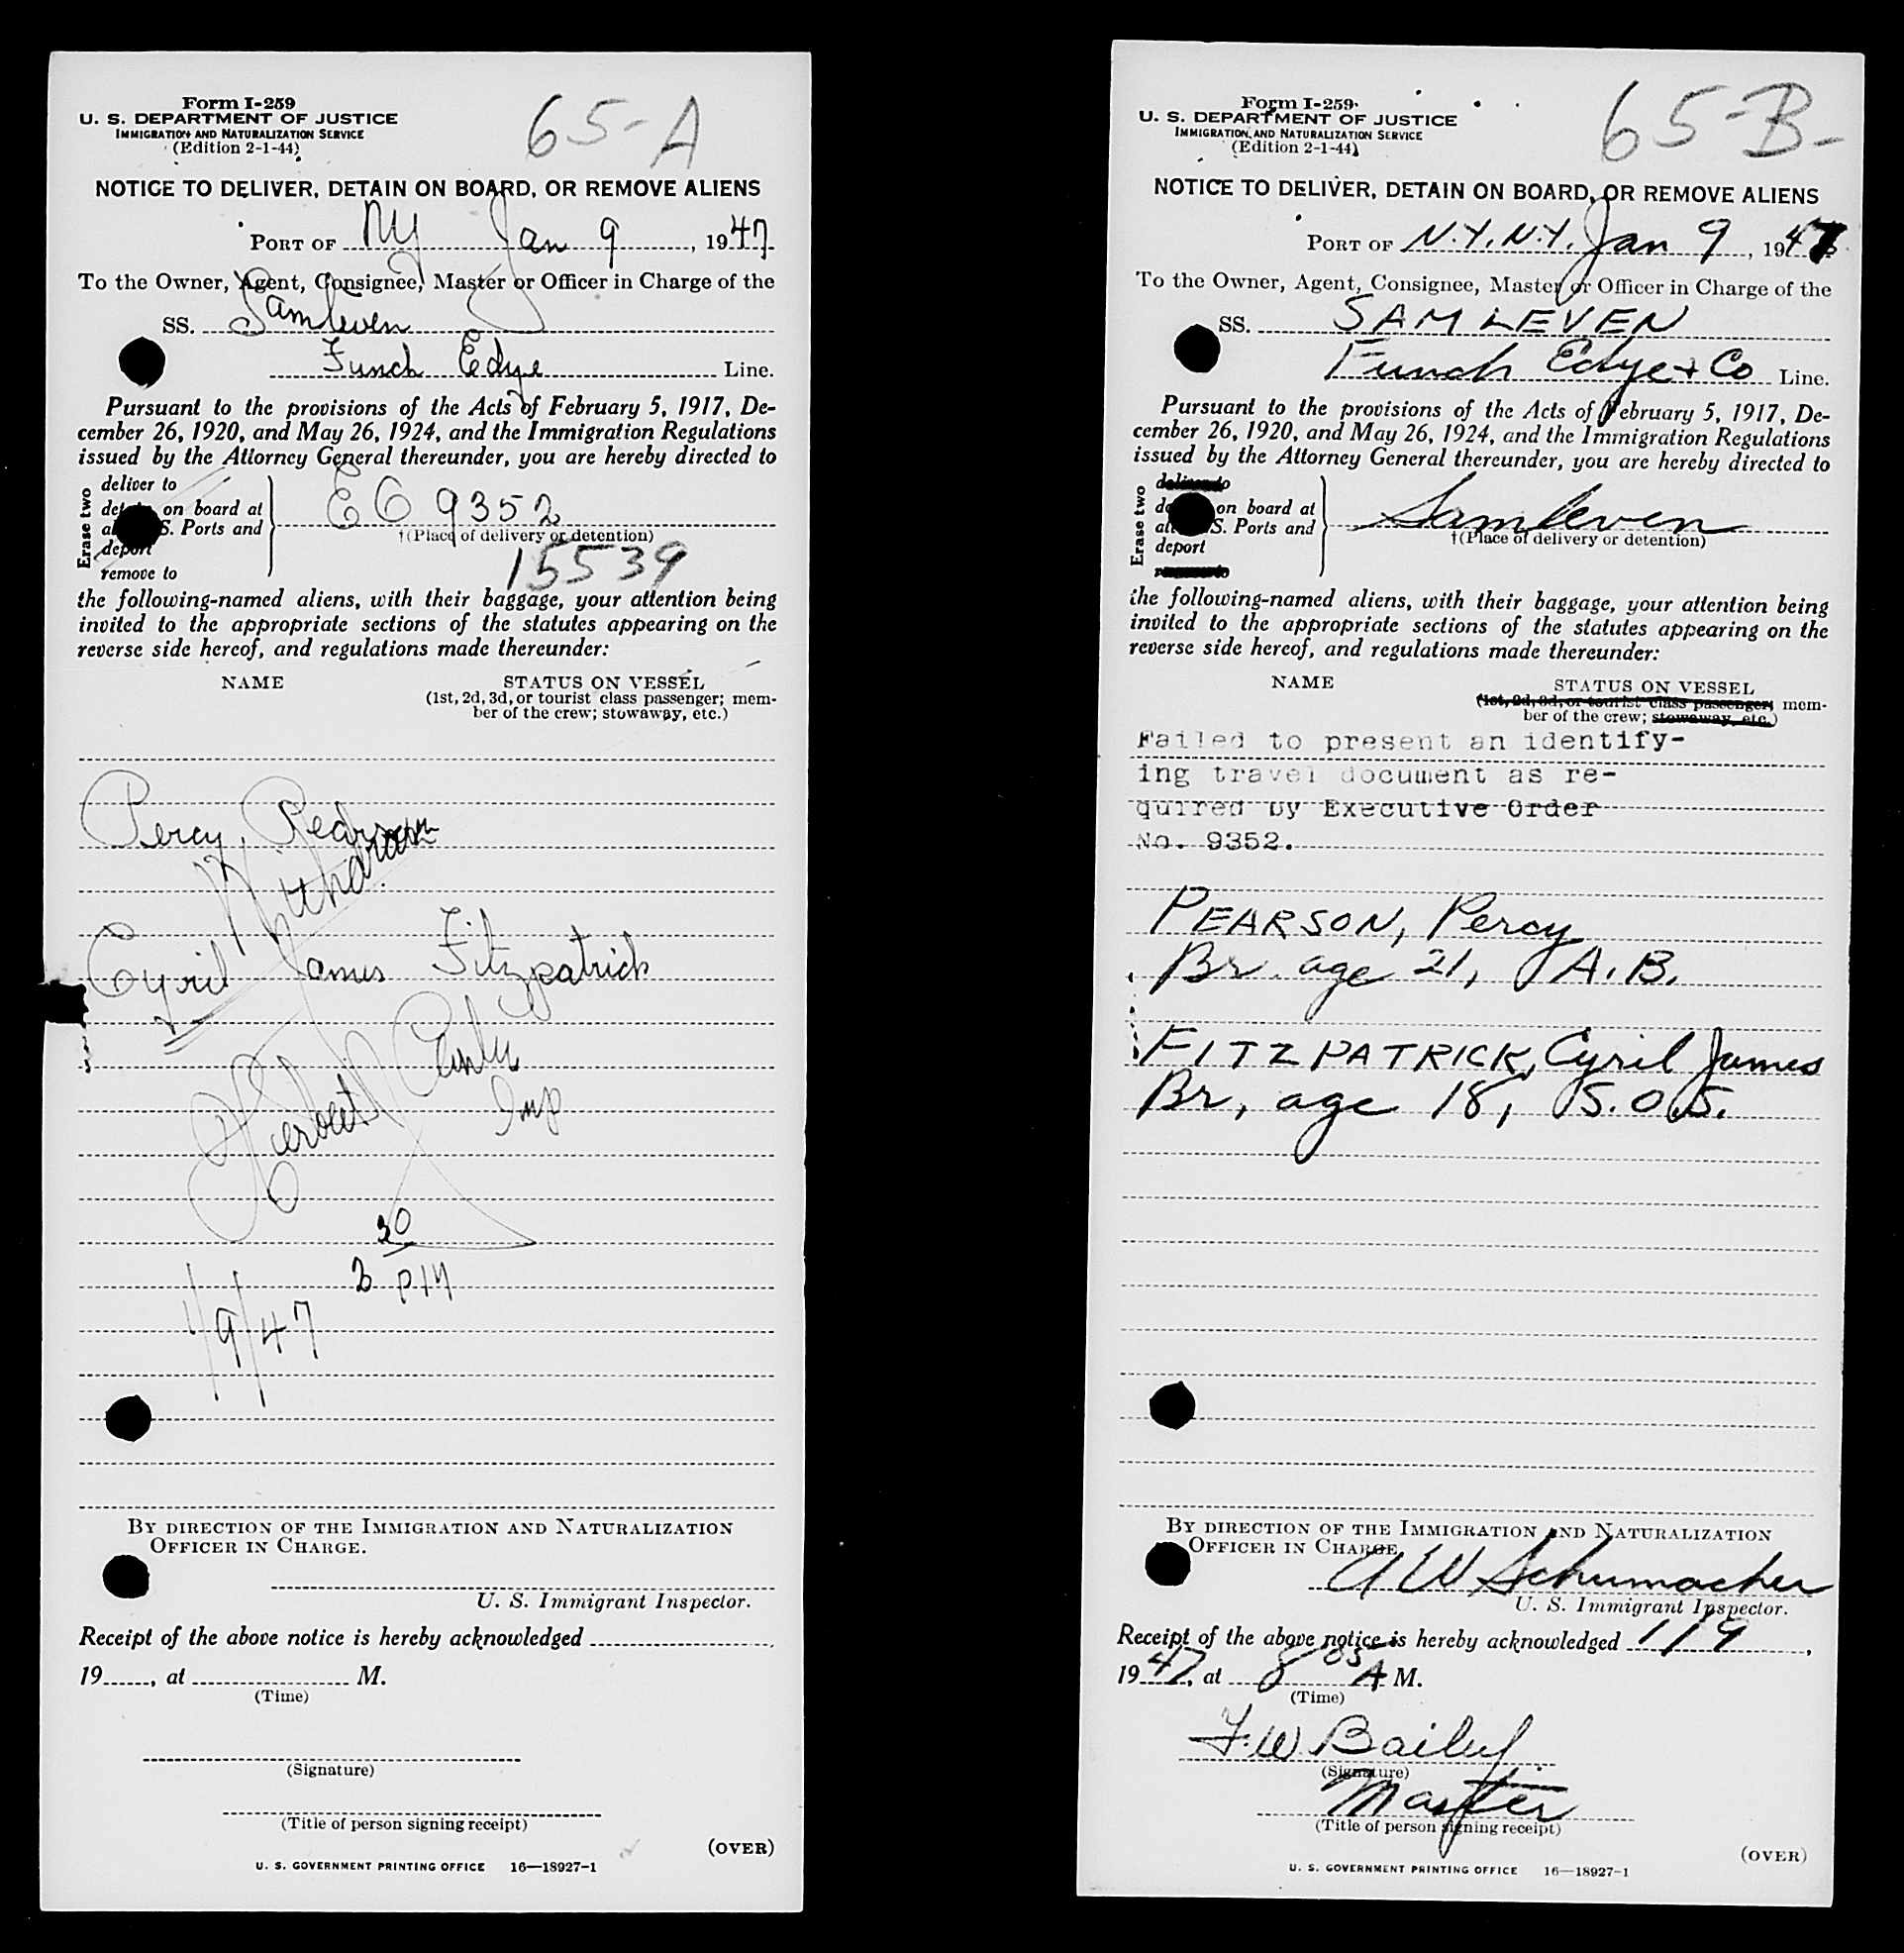 Form I-259
U. S. DEPARTMENT OF JUSTICE
IMMIGRATION AND NATURALIZATION SERVICE
(Edition 2-1-44)
65-A
NOTICE TO DELIVER, DETAIN ON BOARD, OR REMOVE ALIENS
PORT OF NY Jan 9, 1947
To the Owner, Agent, Consignee, Master or Officer in Charge of the
SS. Samleven
Funch Edye Line.
Pursuant to the provisions of the Acts of February 5, 1917, De-
cember 26, 1920, and May 26, 1924, and the Immigration Regulations
issued by the Attorney General thereunder, you are hereby directed to
Erase two
deliver to
on board at
S. Ports and
deport
remove to
EO 9352
†(Place of delivery or detention)
15539
the following-named aliens, with their baggage, your attention being
invited to the appropriate sections of the statutes appearing on the
reverse side hereof, and regulations made thereunder:
NAME STATUS ON VESSEL
(1st, 2d, 3d, or tourist class passenger; mem-
ber of the crew; stowaway, etc.)
Percy, Pearson
Withdrawn
Cyril James Fitzpatrick
Herbert
Insp
2 30 PM
1/9/47
BY DIRECTION OF THE IMMIGRATION AND NATURALIZATION
OFFICER IN CHARGE.
U. S. Immigrant Inspector.
Receipt of the above notice is hereby acknowledged
19......, at M.
(Time)
(Signature)
(Title of person signing receipt)
(OVER)
U. S. GOVERNMENT PRINTING OFFICE 16—18927-1
Form I-259
U. S. DEPARTMENT OF JUSTICE
IMMIGRATION AND NATURALIZATION SERVICE
(Edition 2-1-44)
65-B-
NOTICE TO DELIVER, DETAIN ON BOARD, OR REMOVE ALIENS
PORT OF N.Y.N.Y. Jan 9, 1947
To the Owner, Agent, Consignee, Master or Officer in Charge of the
SS. SAMLEVEN
Funch Edye + Co Line.
Pursuant to the provisions of the Acts of February 5, 1917, De-
cember 26, 1920, and May 26, 1924, and the Immigration Regulations
issued by the Attorney General thereunder, you are hereby directed to
Erase two
deliver to
on board at
S. Ports and
deport
remove to
Samleven
†(Place of delivery or detention)
the following-named aliens, with their baggage, your attention being
invited to the appropriate sections of the statutes appearing on the
reverse side hereof, and regulations made thereunder:
NAME STATUS ON VESSEL
(1st, 2d, 3d, or tourist class passenger; mem-
ber of the crew; stowaway, etc.)
Failed to present an identify-
ing travel document as re-
quired by Executive Order
No. 9352.
PEARSON, Percy
Br. age 21, A.B.
FITZPATRICK, Cyril James
Br, age 18, S.O.S.
BY DIRECTION OF THE IMMIGRATION AND NATURALIZATION
OFFICER IN CHARGE
A W Schumacher
U. S. Immigrant Inspector.
Receipt of the above notice is hereby acknowledged 1/9,
1947, at 8 05 A M.
(Time)
F.W. Bailey
(Signature)
Master
(Title of person signing receipt)
(OVER)
U. S. GOVERNMENT PRINTING OFFICE 16—18927-1